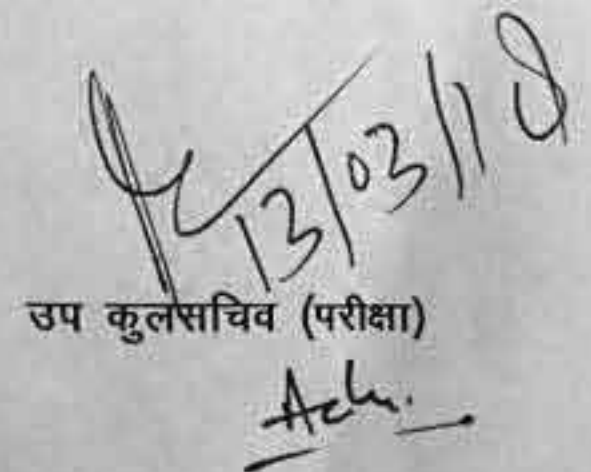 13/03/18
उप कुलसचिव (परीक्षा)